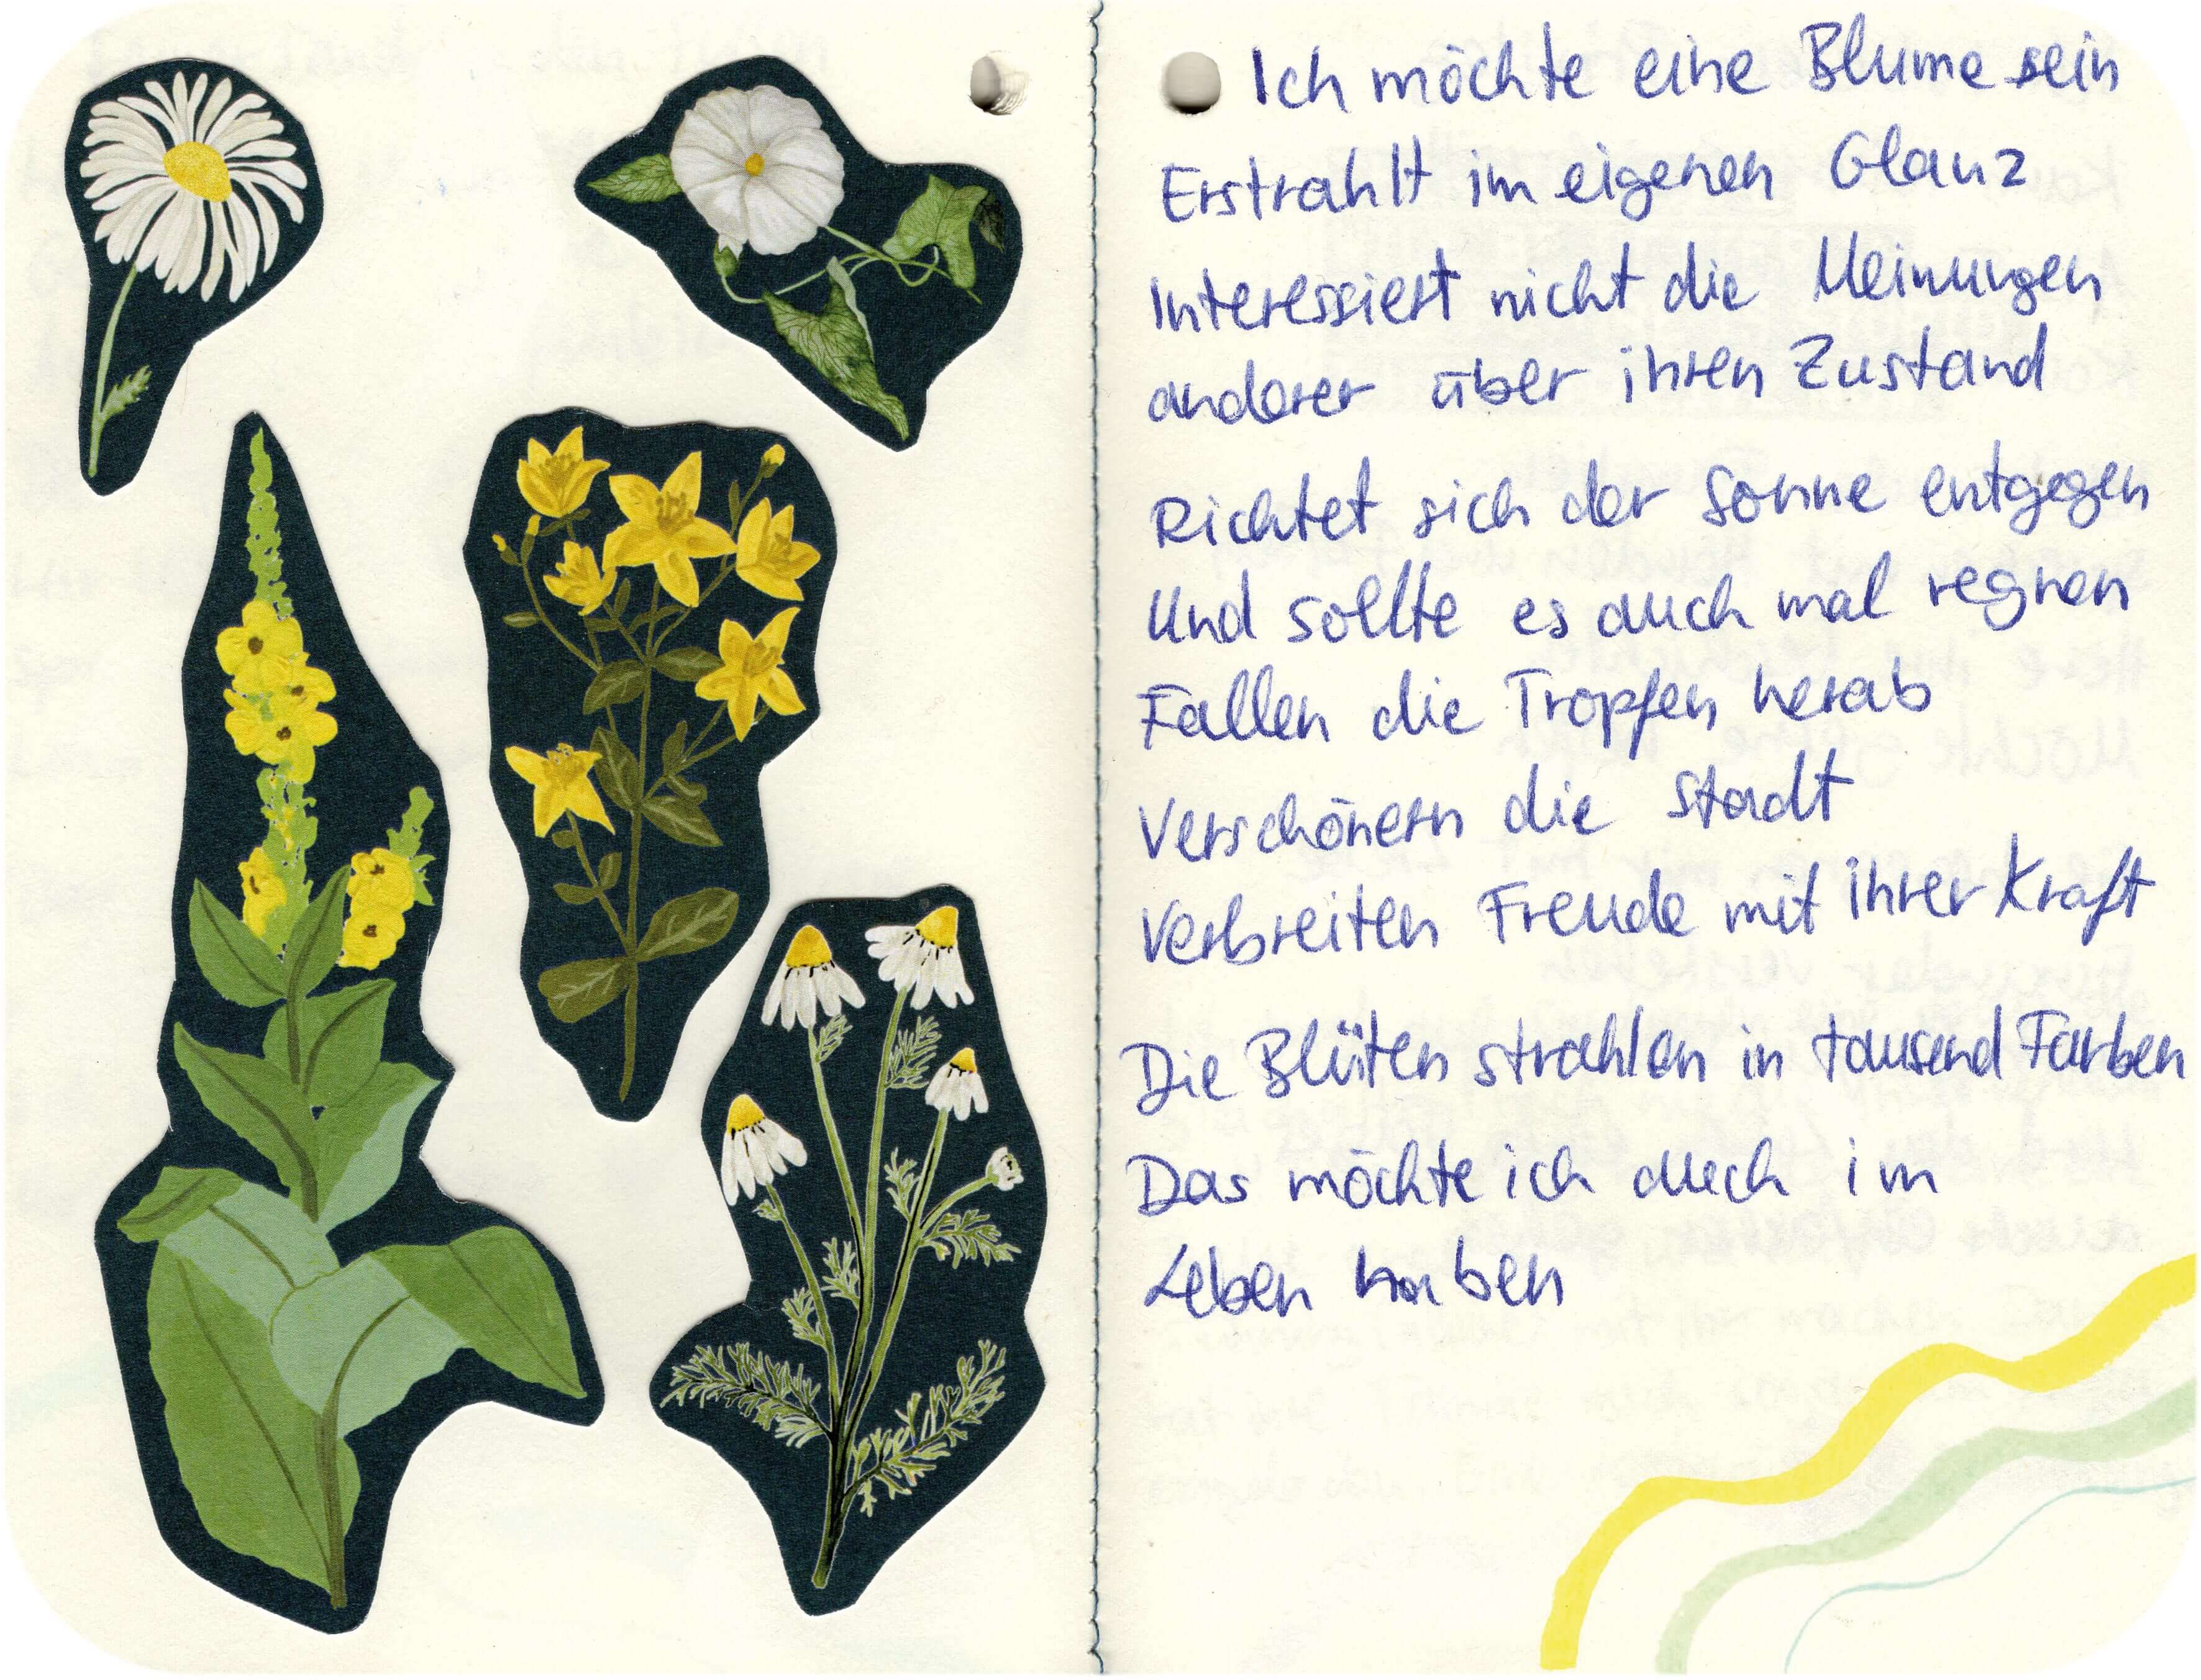 Ich möchte eine Blume sein
Erstrahlt im eigenen Glanz
Interessiert nicht die Meinungen
anderer über ihren Zustand
Richtet sich der Sonne entgegen
Und sollte es auch mal regnen
Fallen die Tropfen herab
Verschönern die Stadt
Verbreiten Freude mit ihrer Kraft
Die Blüten strahlen in tausend Farben
Das möchte ich auch im
Leben haben